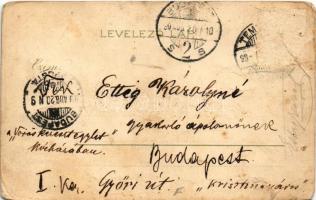 LEVELEZ
Etteg Károlyné
gyakorló ápolónőnek
a "Vöröskereszt egylet
kórházában.
Budapest.
I. ker. Győri út. "Krisztinaváros"
BUDAPEST